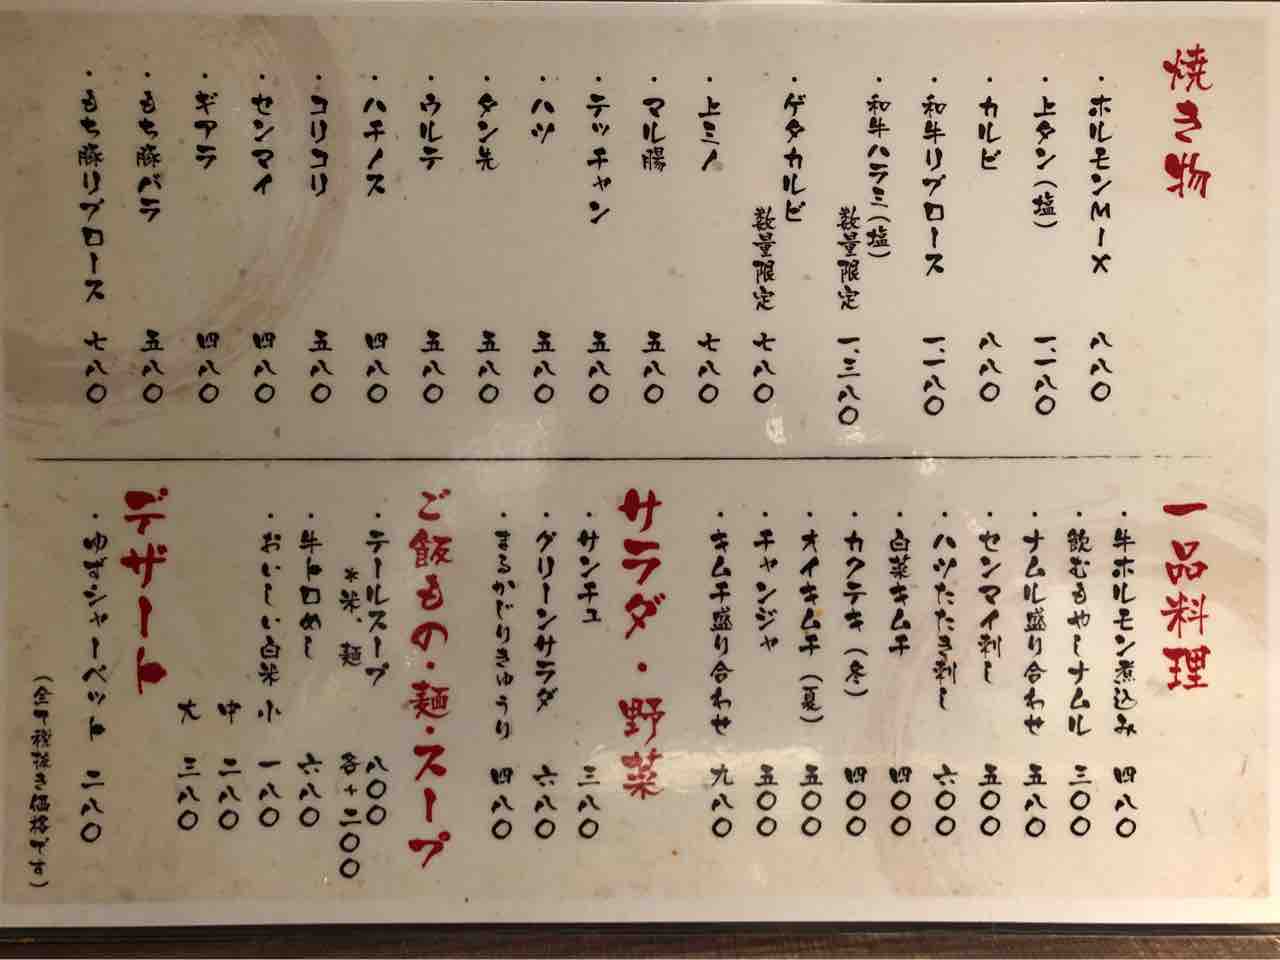 焼き物
・ホルモンMIX 八八〇
・上タン(塩) 一、一八〇
・カルビ 八八〇
・和牛リブロース 一、一八〇
・和牛ハラミ(塩)
数量限定 一、三八〇
・ゲタカルビ
数量限定 七八〇
・上ミノ 七八〇
・マル腸 五八〇
・テッチャン 五八〇
・ハツ 五八〇
・タン先 五八〇
・ウルテ 五八〇
・ハチノス 四八〇
・コリコリ 五八〇
・センマイ 四八〇
・ギアラ 四八〇
・もち豚バラ 五八〇
・もち豚リブロース 七八〇
一品料理
・牛ホルモン煮込み 四八〇
・飲むもやしナムル 三〇〇
・ナムル盛り合わせ 五八〇
・センマイ刺し 五〇〇
・ハツたたき刺し 六〇〇
・白菜キムチ 四〇〇
・カクテキ(冬) 四〇〇
・オイキムチ(夏) 五〇〇
・チャンジャ 五〇〇
・キムチ盛り合わせ 九八〇
サラダ・野菜
・サンチュ 三八〇
・グリーンサラダ 六八〇
・まるかじりきゅうり 四八〇
ご飯もの・麺・スープ
・テールスープ 八〇〇
*米、麺 各+二〇〇
・牛トロめし 六八〇
・おいしい白米 小 一八〇
中 二八〇
大 三八〇
デザート
・ゆずシャーベット 二八〇
(全て税抜き価格です)